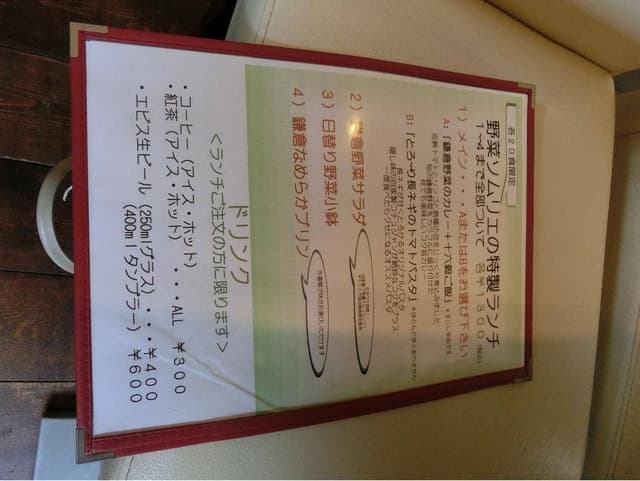 各20食限定
野菜ソムリエの特製ランチ
1~4まで全部ついて 各￥1300(税込)
1)メイン・・・AまたはBをお選び下さい
A:「鎌倉野菜のカレー+十六穀ご飯」
B:「とろ〜り長ネギのトマトパスタ」*ほとんど辛くありません
2)鎌倉野菜サラダ
3)日替り野菜小鉢
4)鎌倉なめらかプリン
ドリンク
<ランチご注文の方に限ります>
・コーヒー(アイス・ホット)
・紅茶(アイス・ホット) ・・・ALL ￥300
・エビス生ビール(250mlグラス)・・・￥400
(400mlタンブラー) ￥600